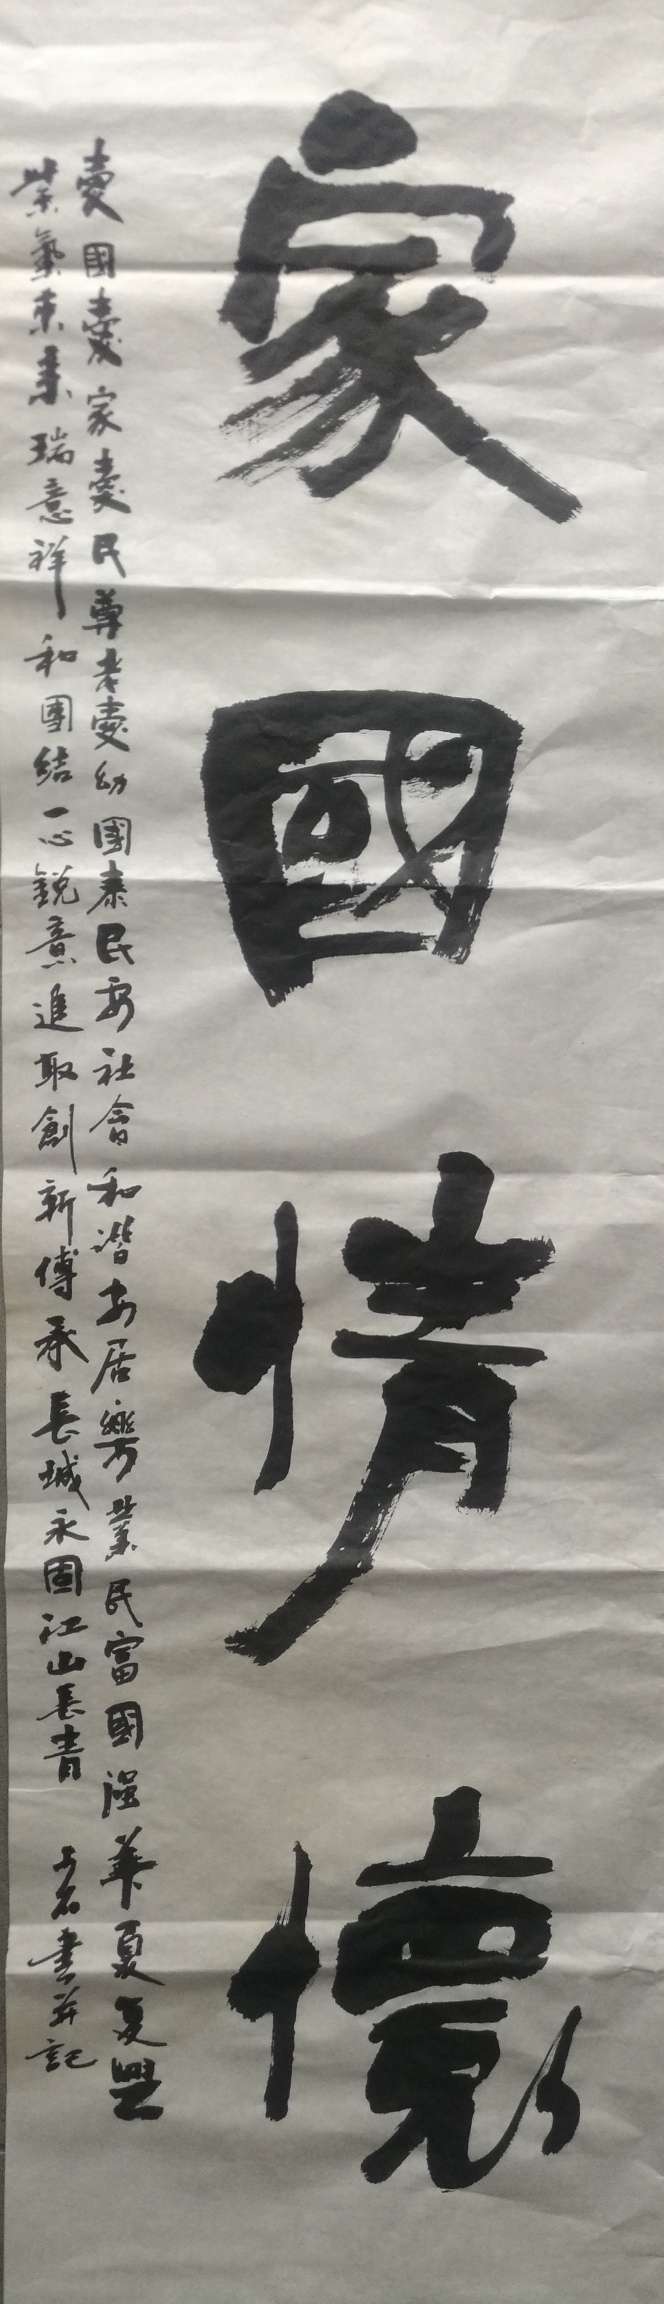 家國情懷
愛國愛家愛民尊老愛幼國泰民安社會和諧安居樂業民富國強華夏复興
紫氣東來瑞意祥和團結一心銳意進取創新傳承長城永固江山長青
石書并記